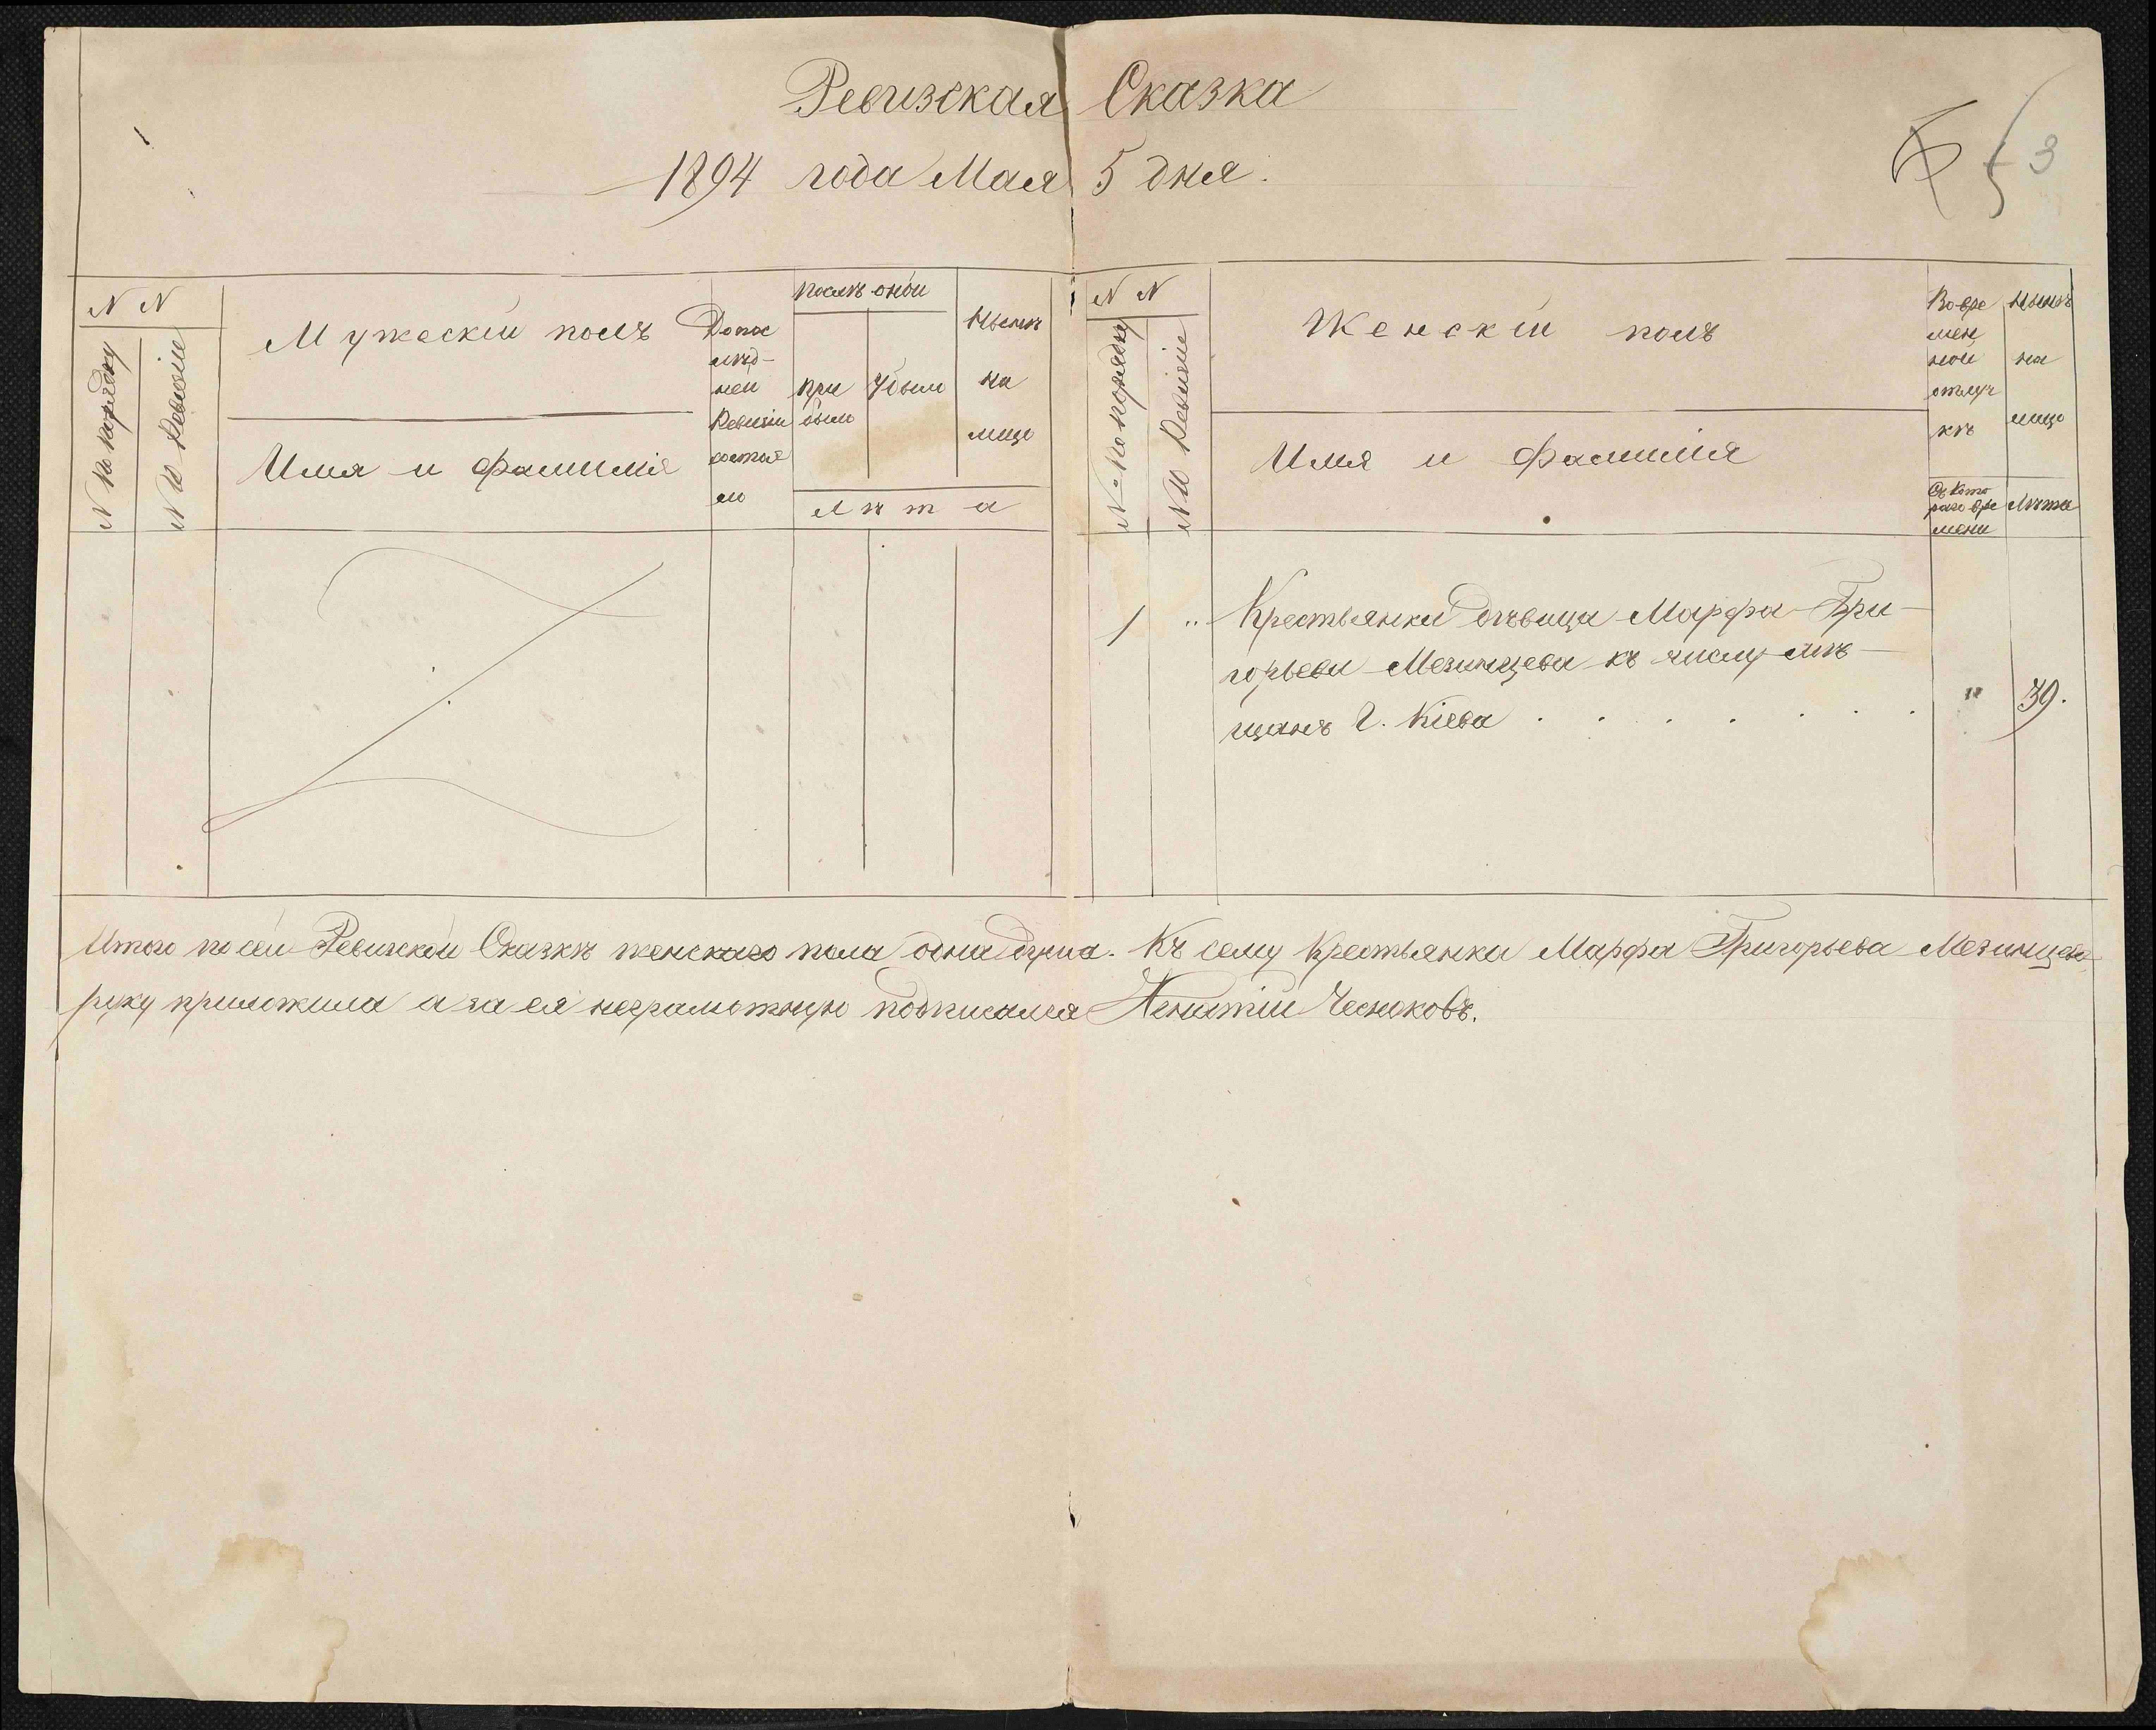 Ревизская Сказка
1894 года Мая 5 дня.
3
N N
N по порядку
N 10 Ревизіи
Мужескій полъ
Имя и фамилія
По пос
лѣд-
ней
Ревизіи
состоя
ло
послѣ оной
при
было
Убыли
Нынѣ
на
лицо
Лѣта
N N
N по порядку
N 10 Ревизіи
Женскій полъ
Имя и фамилія
Во вре
мен
ной
отлуч
кѣ
Нынѣ
на
лицо
Съ кото
раго вре
мени
Лѣта
1 " Крестьянка дѣвица Марфа Гри-
горьева Мезинцева къ числу мѣ-
щанъ г. Кіева . . . . . . . " 39.
Итого по сей Ревизской Сказкѣ женскаго пола одна душа. Къ сему Крестьянка Марфа Григорьева Мезинцева
руку приложила а за ея неграмотную подписался Чесноковъ.